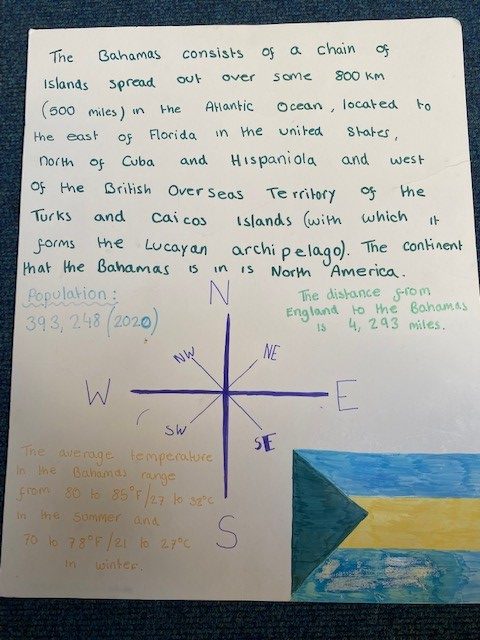 The Bahamas consists of a chain of
islands spread out over some 800 km
(500 miles) in the Atlantic Ocean, located to
the east of Florida in the united States,
north of Cuba and Hispaniola and west
of the British Overseas Territory of the
Turks and Caicos Islands (with which it
forms the Lucayan archipelago). The continent
that the Bahamas is in is North America.
Population:
393,248 (2020)
The distance from
England to the Bahamas
is 4,293 miles.
N
NW NE
W E
SW SE
S
The average temperature
in the Bahamas range
from 80 to 85°F/27 to 32°C
in the summer and
70 to 78°F/21 to 27°C
in winter.